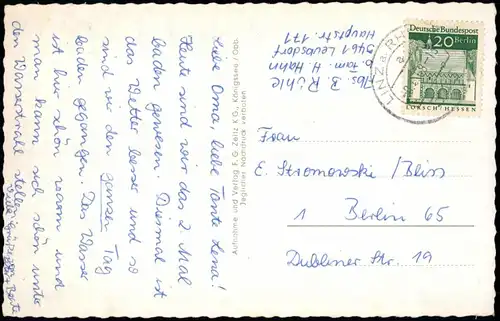 Liebe Oma, liebe Tante Lena!
Heute sind wir das 2. Mal
baden gewesen. Diesmal ist
das Wetter besser und so
sind wir den ganzen Tag
baden gegangen. Das Wasser
ist hier schön warm und
man kann sich schön unter
den Wasserstrahl stellen.
Viele Grüße Beate
Aufnahme und Verlag F. G. Zeitz KG., Königssee / Obb.
Jeglicher Nachdruck verboten
Abs. B. Rühle
b. Fam. H. Hahn
5461 Leubsdorf
Hauptstr. 171
LINZ a. RH
Deutsche Bundespost
20 Berlin
LORSCH/HESSEN
Frau
E. Stromowski/Bliss
1 Berlin 65
Dubliner Str. 19